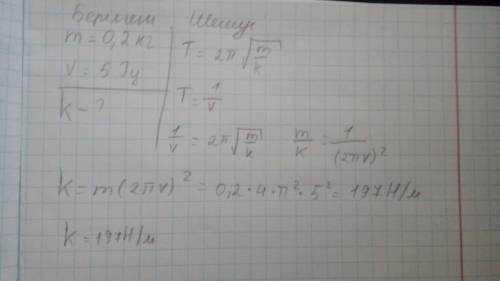 Берілгені Шешуі
m = 0,2 кг T = 2π√(m/k)
ν = 5 Гц
k - ? T = 1/ν
1/ν = 2π√(m/k) m/k = 1/(2πν)²
k = m(2πν)² = 0,2·4·π²·5² = 197 Н/м
k = 197 Н/м